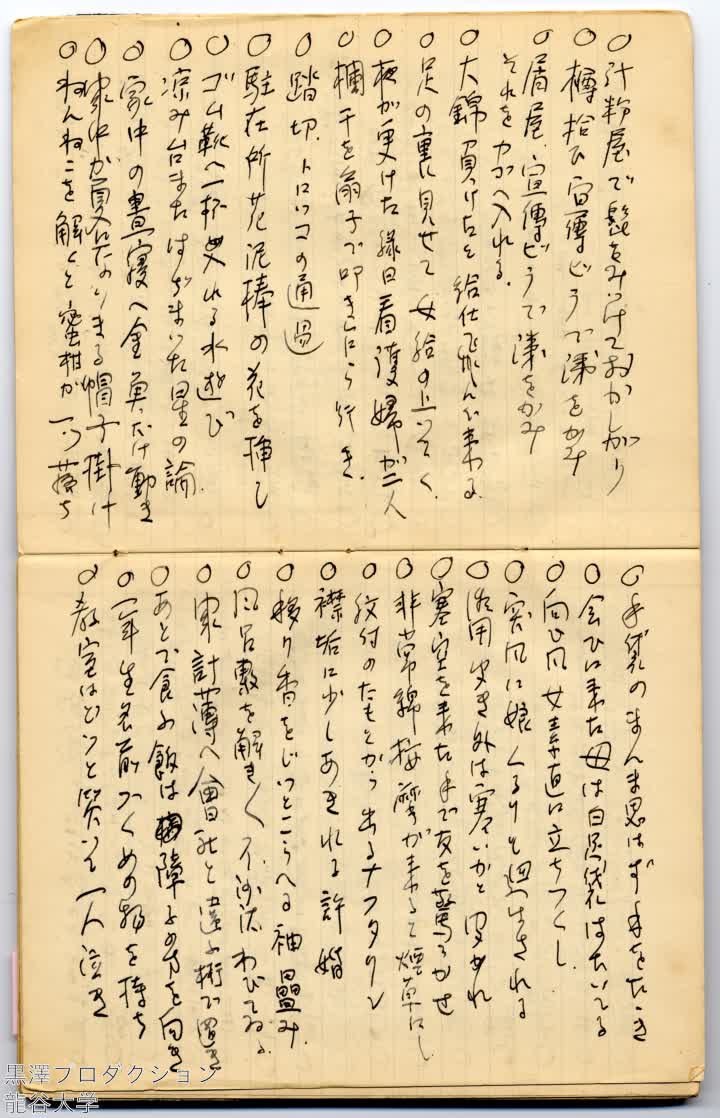 ○汁粉屋で髭をみつけておかしがり
○樽拾ひ宣傳びらで洟をかみ
○屑屋宣傳びらで洟をかみ
それをカゴへ入れる。
○大錦負けたと給仕飛んで来る
○足の裏見せて女給の上
○夜が更けた縁日看護婦が二人
○欄干を扇子で叩き 行き
○踏切、トロッコの通過
○駐在所花泥棒の花を挿し
○ゴム靴へ一杯 入れる水遊び
○涼み台またはじまった星の論
○家中の晝寝へ金魚だけ動き
○家中が 帽子掛け
○ねんねこを解くと蜜柑が一つ落ち
○手袋のまんま思はず手をたたき
○会ひに来た母は白足袋はたいてる
○向ひ風女素直に立ちつくし
○突風に娘くるりと廻される
○浴用 外は寒いかと
○寒空を来た手で友を驚ろかせ
○非常線按摩が来ると煙草にし
○紋付のたもとから出るナフタリン
○襟垢に少しあきれる許婚
○移り香をじつとこらへる袖畳み
○風呂敷を解き〱不沙汰わびてゐる
○家計簿へ會社と違ふ桁で置き
○あとで食ふ飯は障子の方を向き
○一年生名前づくめの物を持ち
○教室はどつと笑い一人泣き
黒澤プロダクション
龍谷大学